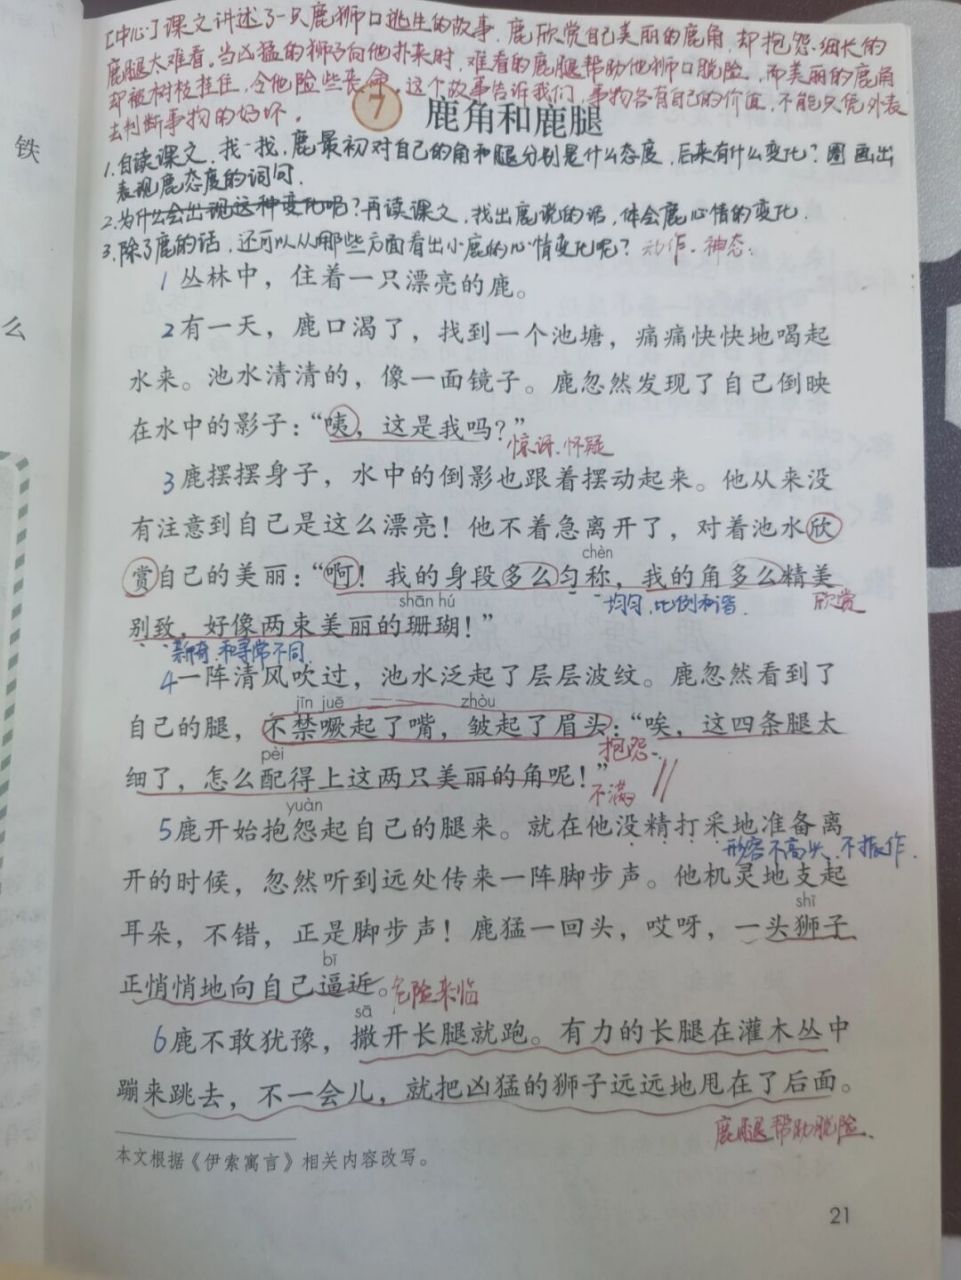 [中心]课文讲述了一只鹿狮口逃生的故事,鹿欣赏自己美丽的鹿角,却抱怨细长的
鹿腿太难看。当凶猛的狮子向他扑来时,难看的鹿腿帮助他狮口脱险,而美丽的鹿角
却被树枝挂住,令他险些丧命。这个故事告诉我们,事物各有自己的价值,不能只凭外表
去判断事物的好坏。
7 鹿角和鹿腿
1.自读课文,找一找,鹿最初对自己的角和腿分别是什么态度,后来有什么变化?圈画出
表现鹿态度的词句.
2.为什么会出现这种变化呢?再读课文,找出鹿说的话,体会鹿心情的变化.
3.除了鹿的话,还可以从哪些方面看出小鹿的心情变化呢?动作.神态.
铁
么
1丛林中,住着一只漂亮的鹿。
2有一天,鹿口渴了,找到一个池塘,痛痛快快地喝起
水来。池水清清的,像一面镜子。鹿忽然发现了自己倒映
在水中的影子:“咦,这是我吗?”
惊讶.怀疑
3鹿摆摆身子,水中的倒影也跟着摆动起来。他从来没
有注意到自己是这么漂亮!他不着急离开了,对着池水欣
chèn
赏自己的美丽:“啊!我的身段多么匀称,我的角多么精美
shān hú
均匀.比例和谐.
欣赏
别致,好像两束美丽的珊瑚!”
新奇.和寻常不同
4一阵清风吹过,池水泛起了层层波纹。鹿忽然看到了
jīn juē zhòu
自己的腿,不禁噘起了嘴,皱起了眉头:“唉,这四条腿太
pèi
抱怨
细了,怎么配得上这两只美丽的角呢!”
不满
yuàn
5鹿开始抱怨起自己的腿来。就在他没精打采地准备离
形容不高兴、不振作.
开的时候,忽然听到远处传来一阵脚步声。他机灵地支起
shī
耳朵,不错,正是脚步声!鹿猛一回头,哎呀,一头狮子
bī
正悄悄地向自己逼近。
危险来临
sā
6鹿不敢犹豫,撒开长腿就跑。有力的长腿在灌木丛中
蹦来跳去,不一会儿,就把凶猛的狮子远远地甩在了后面。
鹿腿帮助脱险.
本文根据《伊索寓言》相关内容改写。
21